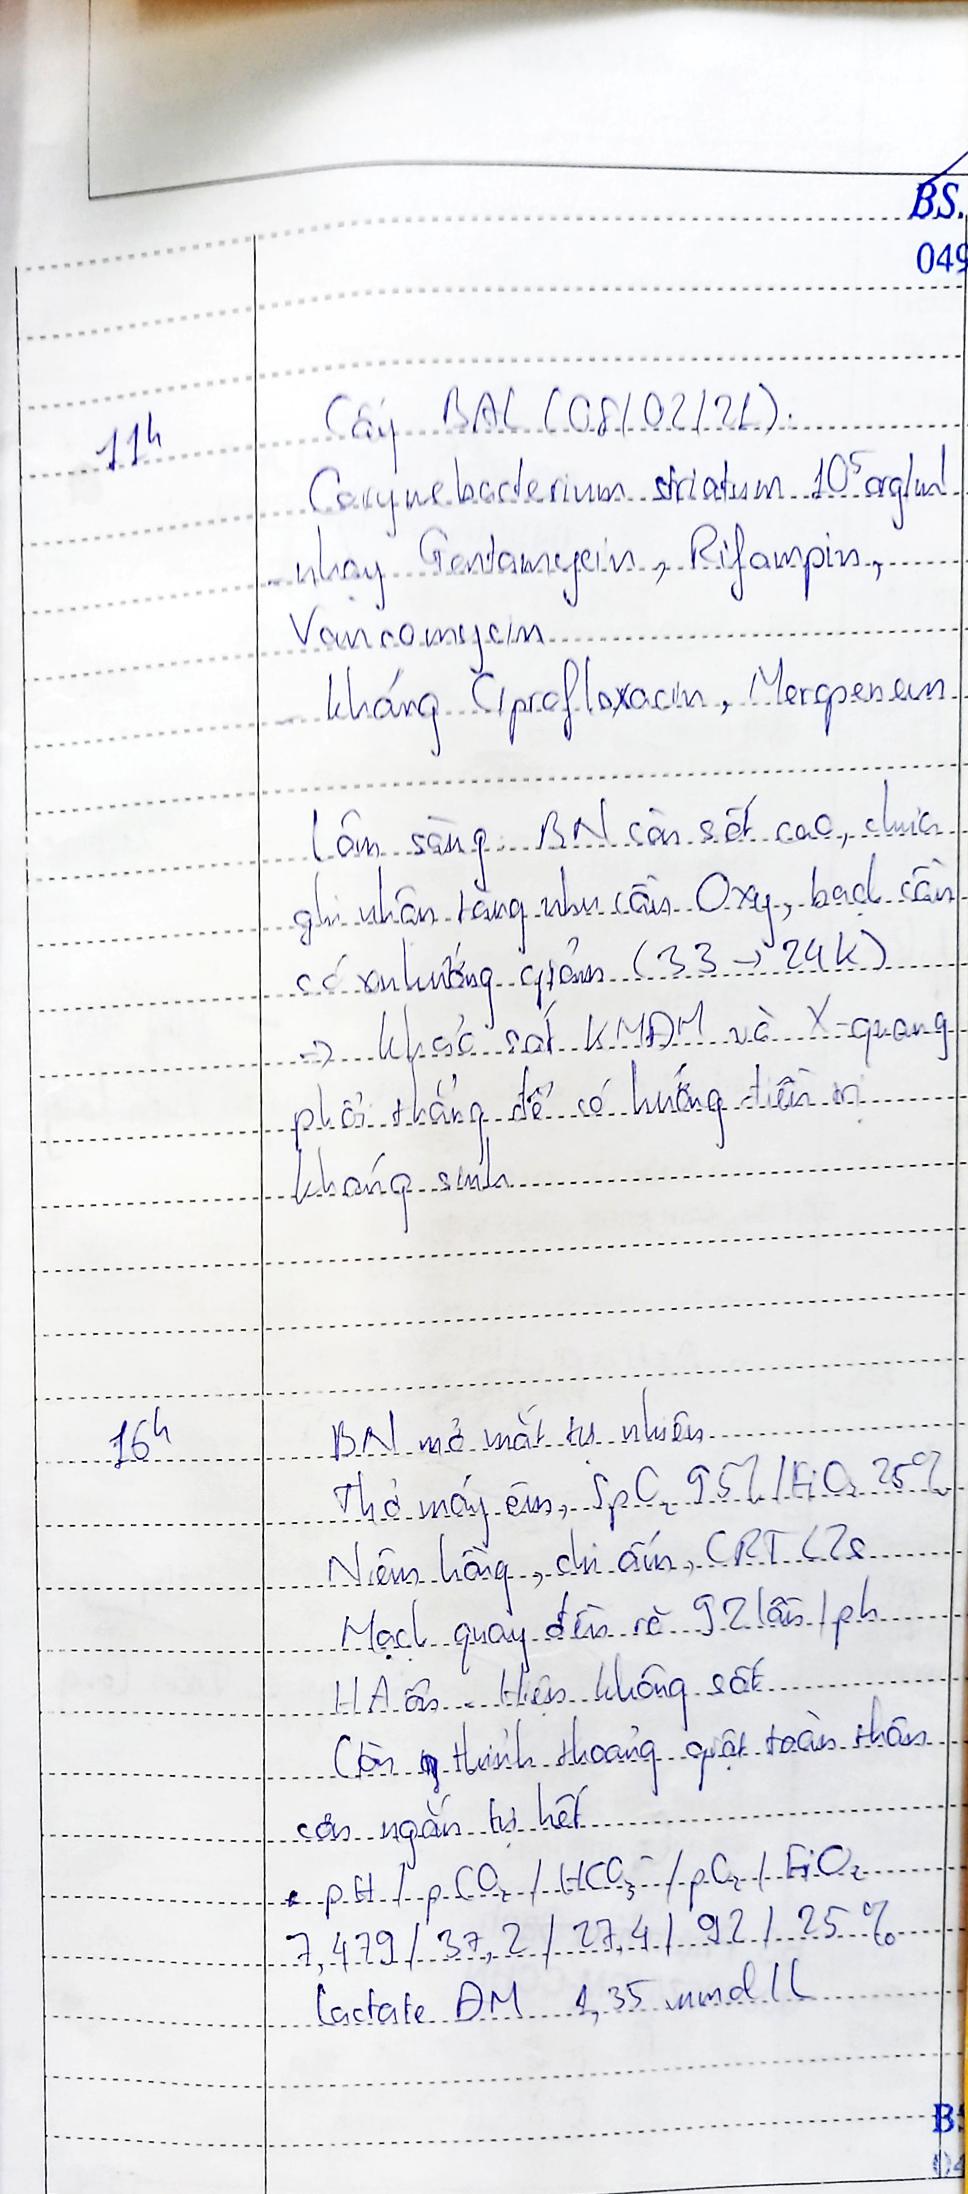 BS.
049
11h
Cấy BAL (08/02/21).
Corynebacterium striatum 10⁵ org/ml
nhạy Gentamycin, Rifampin,
Vancomycin
kháng Ciprofloxacin, Meropenem
Lâm sàng: BN còn sốt cao, chưa
ghi nhận tăng nhu cầu Oxy, bạch cầu
có xu hướng giảm (33 → 24k)
⇒ khảo sát KMĐM và X-quang
phổi thẳng để có hướng điều trị
kháng sinh
16h
BN mở mắt tự nhiên
Thở máy êm, SpO₂ 95%/FiO₂ 25%
Niêm hồng, chi ấm, CRT <2s
Mạch quay đều rõ 92 lần/ph
HA ổn. Hiện không sốt
Còn thỉnh thoảng giật toàn thân
cơn ngắn tự hết
• pH / pCO₂ / HCO₃⁻ / pO₂ / FiO₂
7,479 / 37,2 / 27,4 / 92 / 25%
Lactate ĐM 1,35 mmol/L